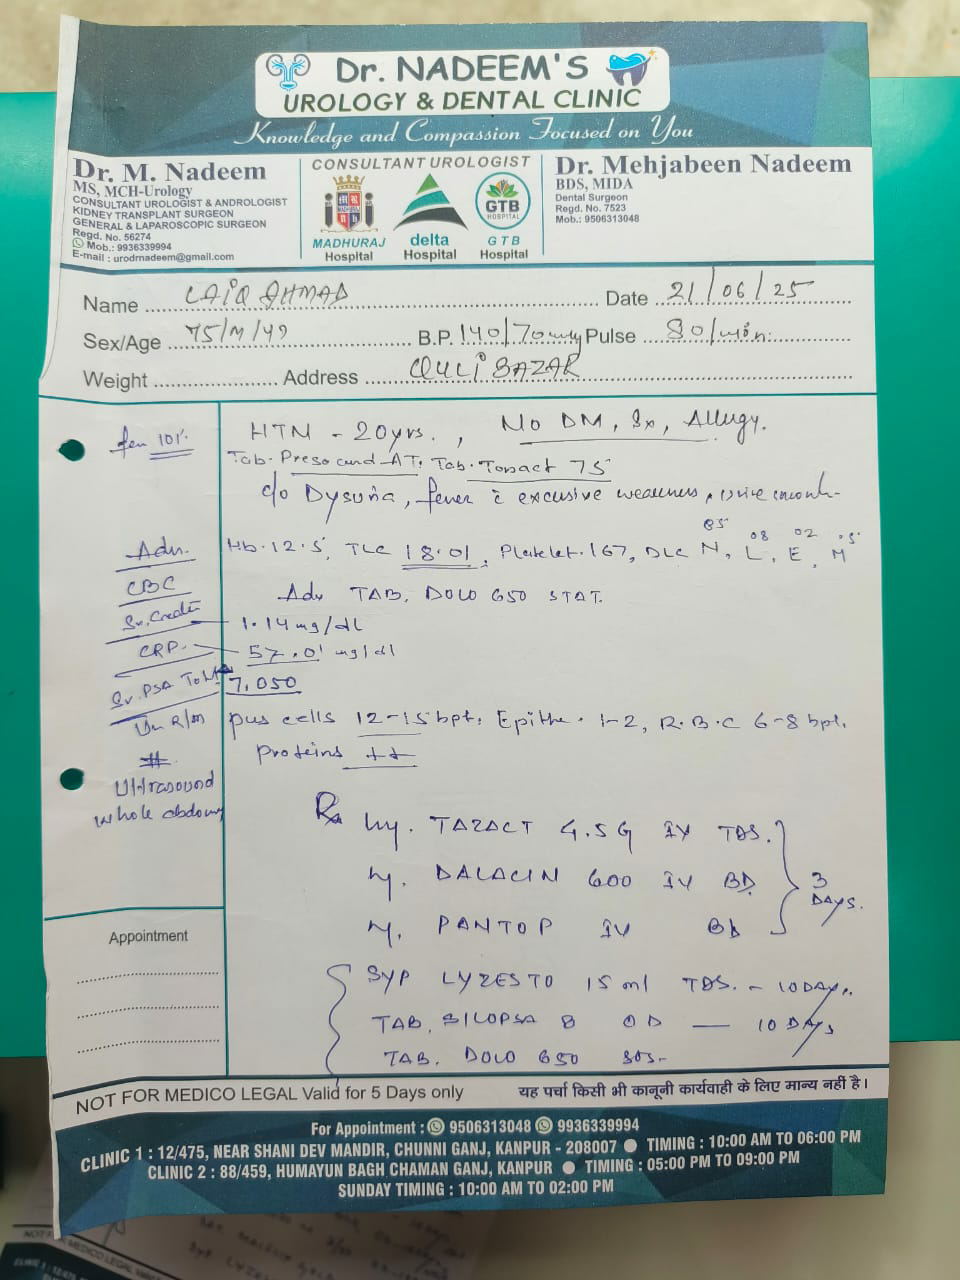 Dr. NADEEM'S
UROLOGY & DENTAL CLINIC
Knowledge and Compassion Focused on You
Dr. M. Nadeem
MS, MCH-Urology
CONSULTANT UROLOGIST & ANDROLOGIST
KIDNEY TRANSPLANT SURGEON
GENERAL & LAPAROSCOPIC SURGEON
Regd. No. 56274
Mob.: 9936339994
E-mail : urodrnadeem@gmail.com
CONSULTANT UROLOGIST
MADHURAJ Hospital
delta Hospital
GTB HOSPITAL
GTB Hospital
Dr. Mehjabeen Nadeem
BDS, MIDA
Dental Surgeon
Regd. No. 7523
Mob.: 9506313048
Name LAIQ AHMAD Date 21/06/25
Sex/Age 75/M/ B.P. 140/70 Pulse 80/min.
Weight Address QULI BAZAR
101
HTN - 20yrs., No DM, Allergy.
Tab. AT, Tab. 75
c/o Dysuria, fever c weakness, urine
85 08 02 05
Adv. Hb. 12.5, TLC 18.01, Platelet. 167, DLC N, L, E, M
CBC
Adv TAB. DOLO 650 STAT.
Sr. Creatin 1.14 mg/dl
CRP. 57.01 mg/dl
Sr. PSA Total 7.050
Un R/M pus cells 12-15 hpf, Epithe. 1-2, R.B.C 6-8 hpf.
proteins ++
#
Ultrasound
whole abdomen
Rx
Inj. TAZACT 4.5G IV TDS.
Inj. DALACIN 600 IV BD
3 DAYS.
Inj. PANTOP IV BD
Appointment
SYP LYZESTO 15 ml TDS. - 10 DAYS.
TAB. SILOPSA 8 OD — 10 DAYS
TAB. DOLO 650 SOS-
NOT FOR MEDICO LEGAL Valid for 5 Days only यह पर्चा किसी भी कानूनी कार्यवाही के लिए मान्य नहीं है।
For Appointment : 9506313048 9936339994
CLINIC 1 : 12/475, NEAR SHANI DEV MANDIR, CHUNNI GANJ, KANPUR - 208007 ● TIMING : 10:00 AM TO 06:00 PM
CLINIC 2 : 88/459, HUMAYUN BAGH CHAMAN GANJ, KANPUR ● TIMING : 05:00 PM TO 09:00 PM
SUNDAY TIMING : 10:00 AM TO 02:00 PM